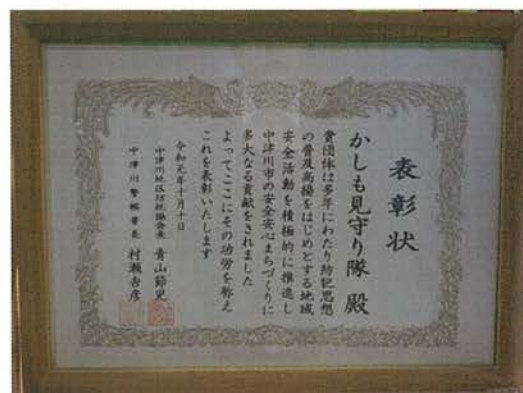 表彰状
かしも見守り隊 殿
貴団体は多年にわたり防犯思想
の普及高揚をはじめとする地域
安全活動を積極的に推進し
中津川市の安全安心まちづくりに
多大なる貢献をされました
よってここにその功労を称え
これを表彰いたします
令和元年十月十日
中津川地区防犯協会長 青山節児
中津川警察署長 村瀬吉彦